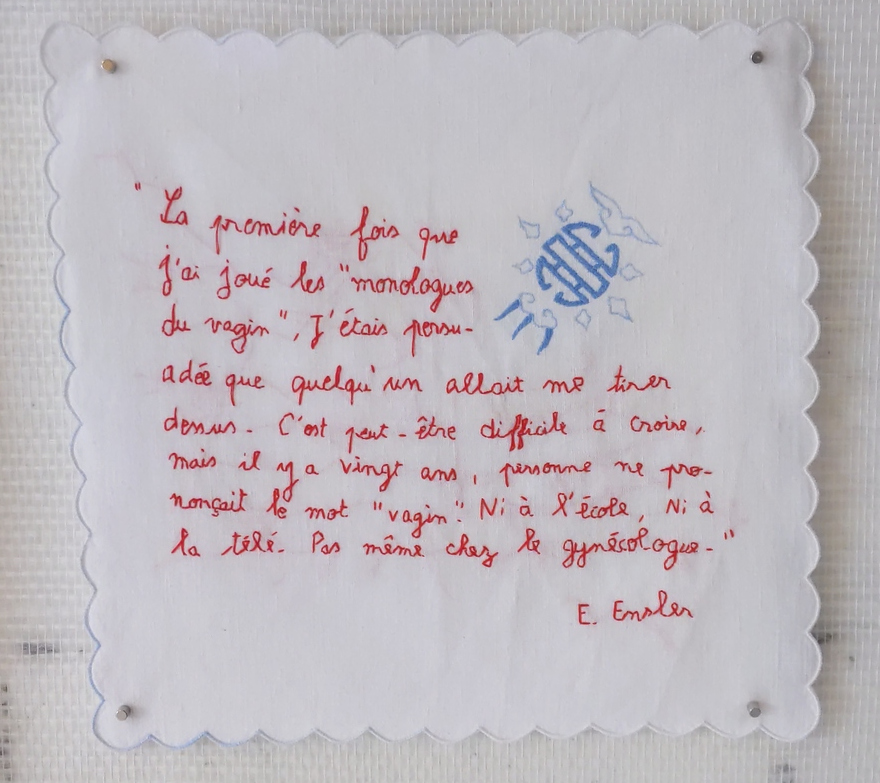 " La première fois que
j'ai joué les "monologues
du vagin", J'étais persu-
adée que quelqu'un allait me tirer
dessus. C'est peut-être difficile à croire,
mais il y a vingt ans, personne ne pro-
nonçait le mot "vagin". Ni à l'école, Ni à
la télé. Pas même chez le gynécologue. "
E. Ensler